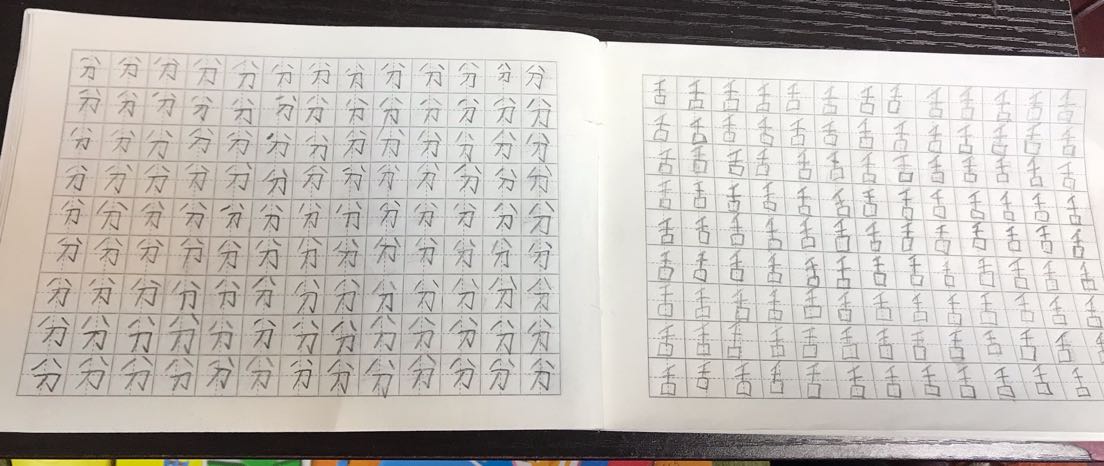 分分分分分分分分分分分分分
分分分分分分分分分分分分分
分分分分分分分分分分分分分
分分分分分分分分分分分分分
分分分分分分分分分分分分分
分分分分分分分分分分分分分
分分分分分分分分分分分分分
分分分分分分分分分分分分分
分分分分分分分分分分分分分
舌舌舌舌舌舌舌舌舌舌舌舌舌
舌舌舌舌舌舌舌舌舌舌舌舌舌
舌舌舌舌舌舌舌舌舌舌舌舌舌
舌舌舌舌舌舌舌舌舌舌舌舌舌
舌舌舌舌舌舌舌舌舌舌舌舌舌
舌舌舌舌舌舌舌舌舌舌舌舌舌
舌舌舌舌舌舌舌舌舌舌舌舌舌
舌舌舌舌舌舌舌舌舌舌舌舌舌
舌舌舌舌舌舌舌舌舌舌舌舌